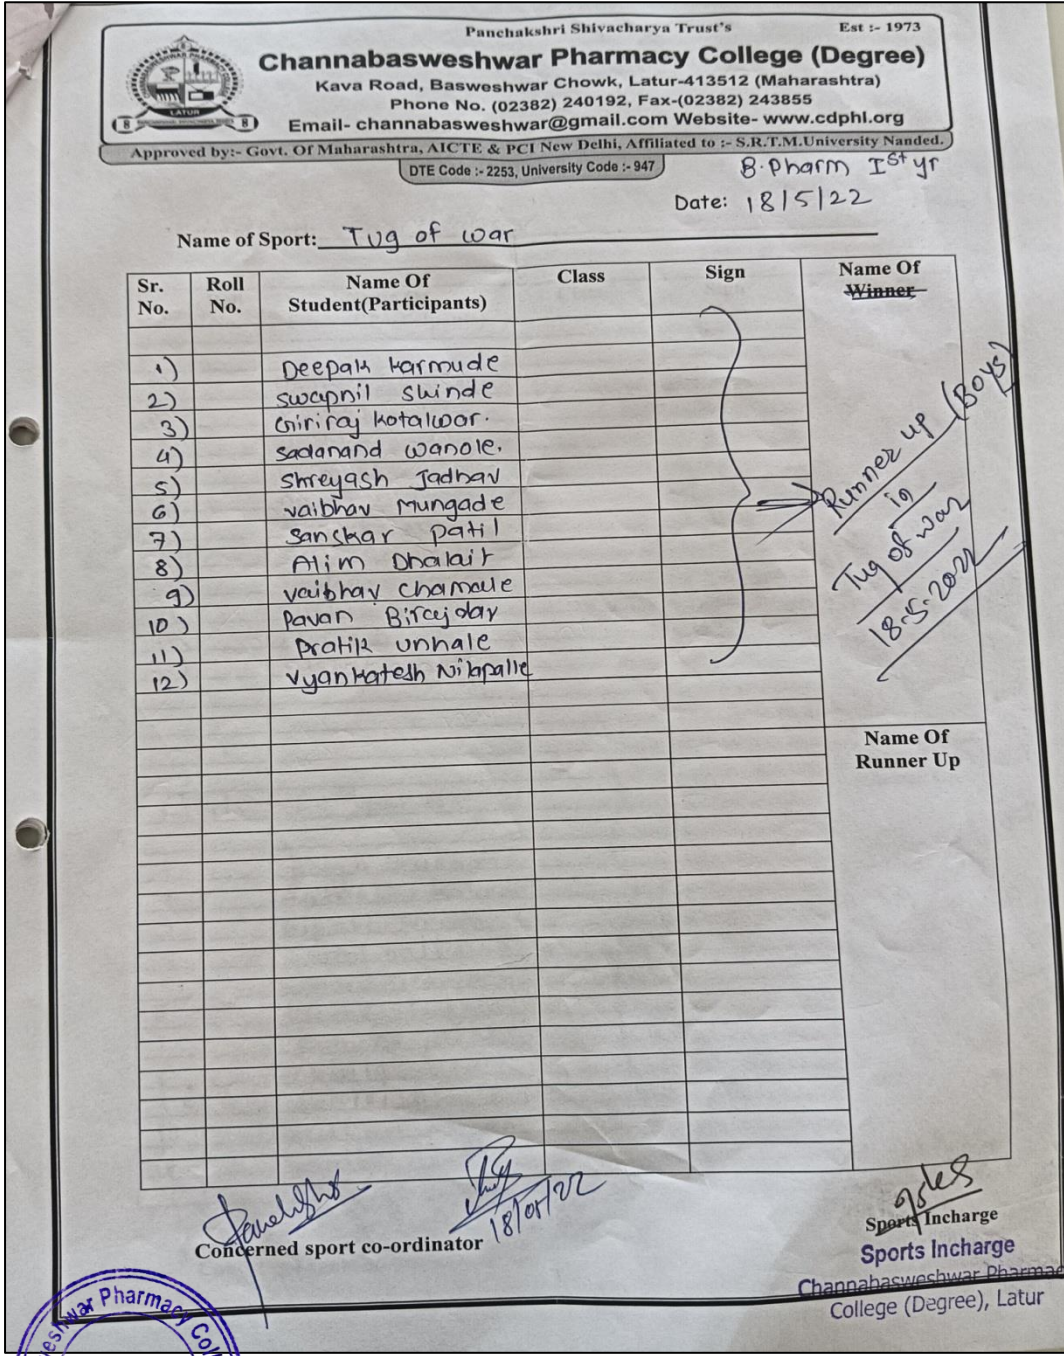 Panchakshri Shivacharya Trust's
Est :- 1973
Channabasweshwar Pharmacy College (Degree)
Kava Road, Basweshwar Chowk, Latur-413512 (Maharashtra)
Phone No. (02382) 240192, Fax-(02382) 243855
Email- channabasweshwar@gmail.com Website- www.cdphl.org
LATUR
8 8
Approved by:- Govt. Of Maharashtra, AICTE & PCI New Delhi, Affiliated to :- S.R.T.M.University Nanded.
DTE Code :- 2253, University Code :- 947
B.Pharm Ist yr
Date: 18/5/22
Name of Sport: Tug of war
Sr. No. Roll No. Name Of Student(Participants) Class Sign Name Of Winner
1) Deepak karmude
2) swapnil shinde
3) Giriraj kotalwar.
4) sadanand wanole.
5) shreyash Jadhav
6) vaibhav Mungade
7) Sanskar patil
8) Alim Dhalait
9) vaibhav chamale
10) Pavan Birajdar
11) Pratik unhale
12) vyankatesh Nilapalle
Runner up (Boys)
in
Tug of war
18-5-2022
Name Of
Runner Up
18/05/22
Concerned sport co-ordinator
Sports Incharge
Sports Incharge
Channabasweshwar Pharmac
College (Degree), Latur
eshwar Pharmacy Coll